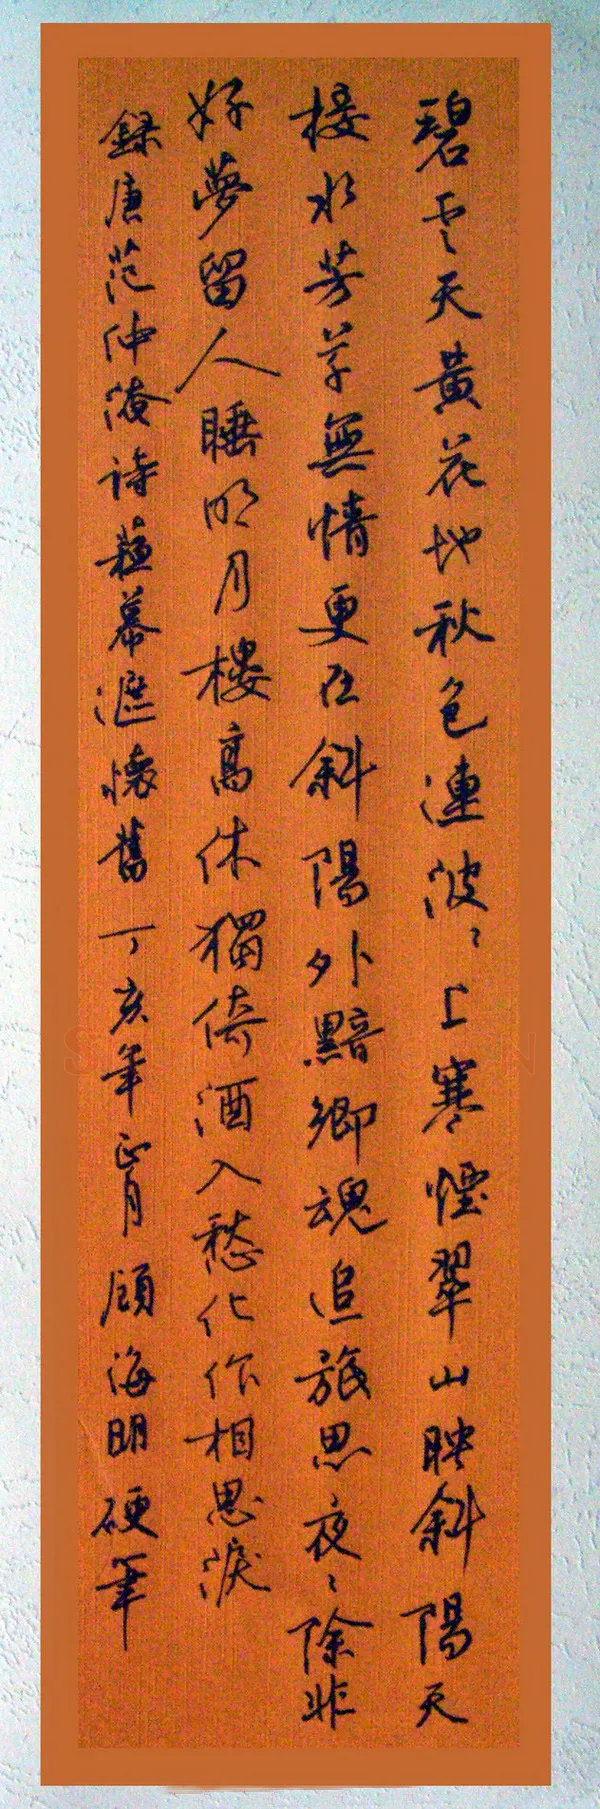 碧雲天黃花地秋色連波〻上寒煙翠山映斜陽天
接水芳草無情更在斜陽外黯鄉魂追旅思夜〻除非
好夢留人睡明月樓高休獨倚酒入愁化作相思淚
錄唐范仲淹詩蘇幕遮懷舊 丁亥年正月顧海明硬筆